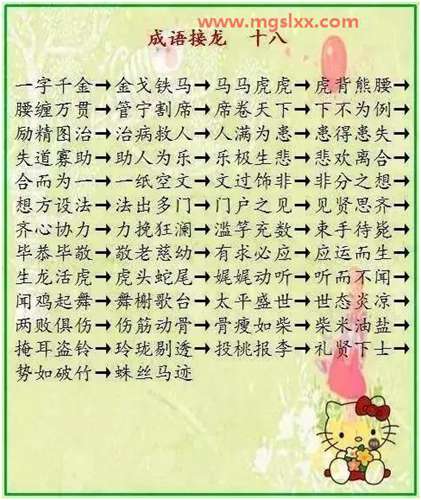 www.mgslxx.com
成语接龙 十八
一字千金→金戈铁马→马马虎虎→虎背熊腰→
腰缠万贯→管宁割席→席卷天下→下不为例→
励精图治→治病救人→人满为患→患得患失→
失道寡助→助人为乐→乐极生悲→悲欢离合→
合而为一→一纸空文→文过饰非→非分之想→
想方设法→法出多门→门户之见→见贤思齐→
齐心协力→力挽狂澜→滥竽充数→束手待毙→
毕恭毕敬→敬老慈幼→有求必应→应运而生→
生龙活虎→虎头蛇尾→娓娓动听→听而不闻→
闻鸡起舞→舞榭歌台→太平盛世→世态炎凉→
两败俱伤→伤筋动骨→骨瘦如柴→柴米油盐→
掩耳盗铃→玲珑剔透→投桃报李→礼贤下士→
势如破竹→蛛丝马迹